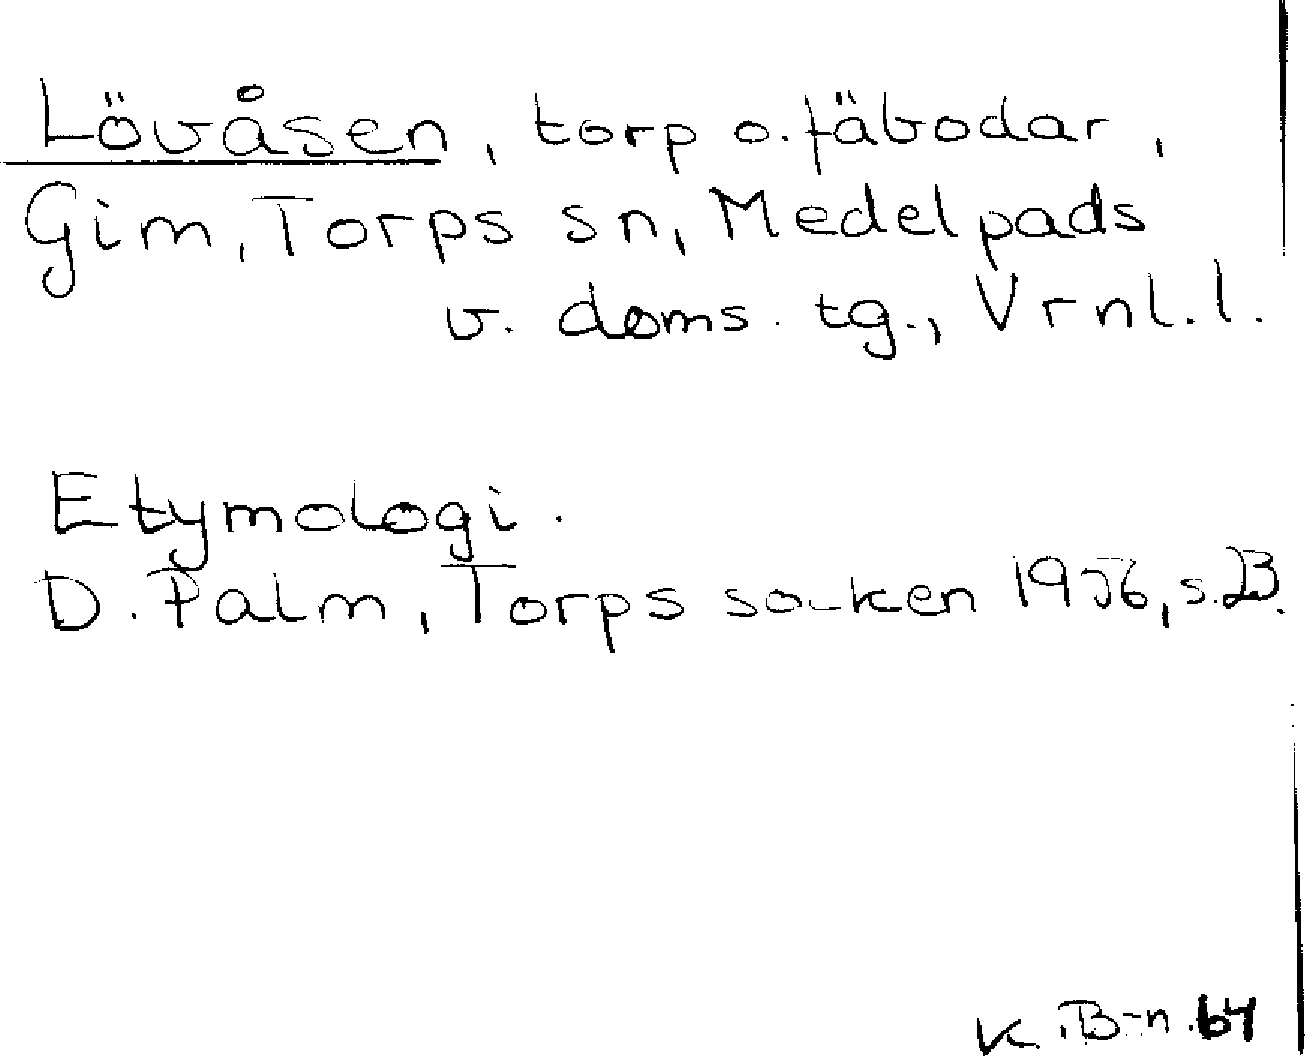 Lövåsen, torp o. fäbodar,
Gim, Torps sn, Medelpads
v. doms. tg., Vrnl. l.
Etymologi.
D. Palm, Torps socken 1956, s.
K. B-n. 64